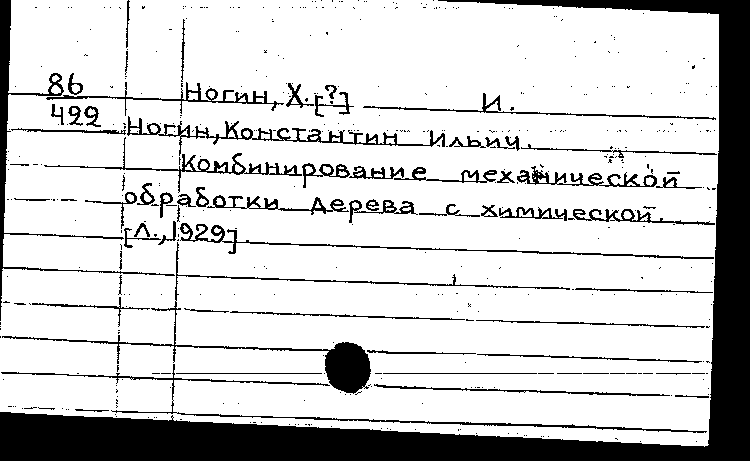 86 Ногин, Х.[?] И.
422 Ногин, Константин Ильич.
Комбинирование механической
обработки дерева с химической.
[Л., 1929].